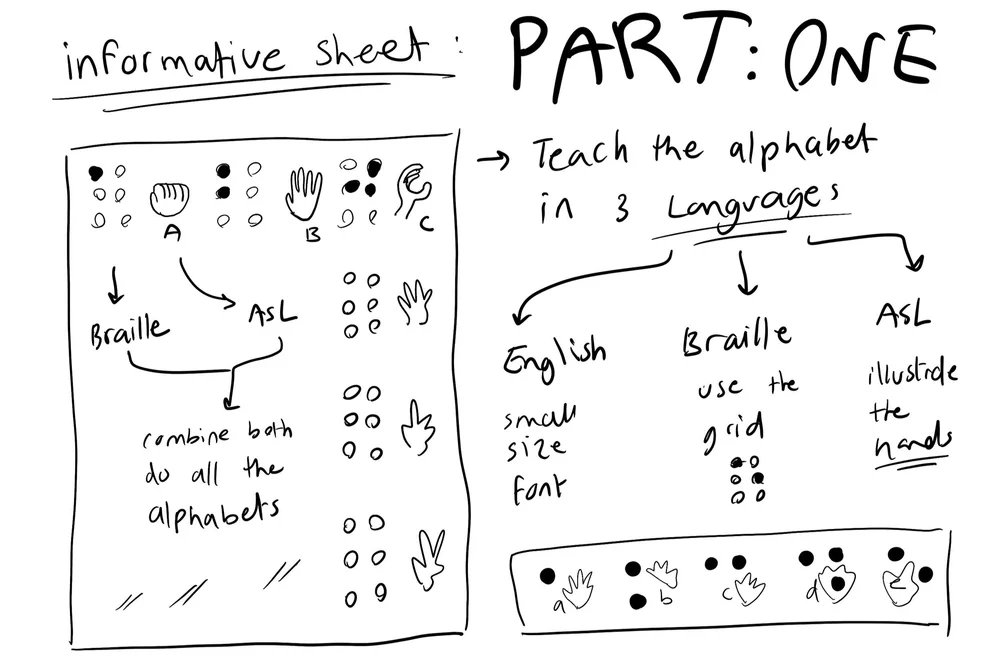 informative sheet:
PART: ONE
A
B
C
Braille
ASL
combine both
do all the
alphabets
→ Teach the alphabet
in 3 Languages
English
small
size
font
Braille
use the
grid
ASL
illustrate
the
hands
a
b
c
d